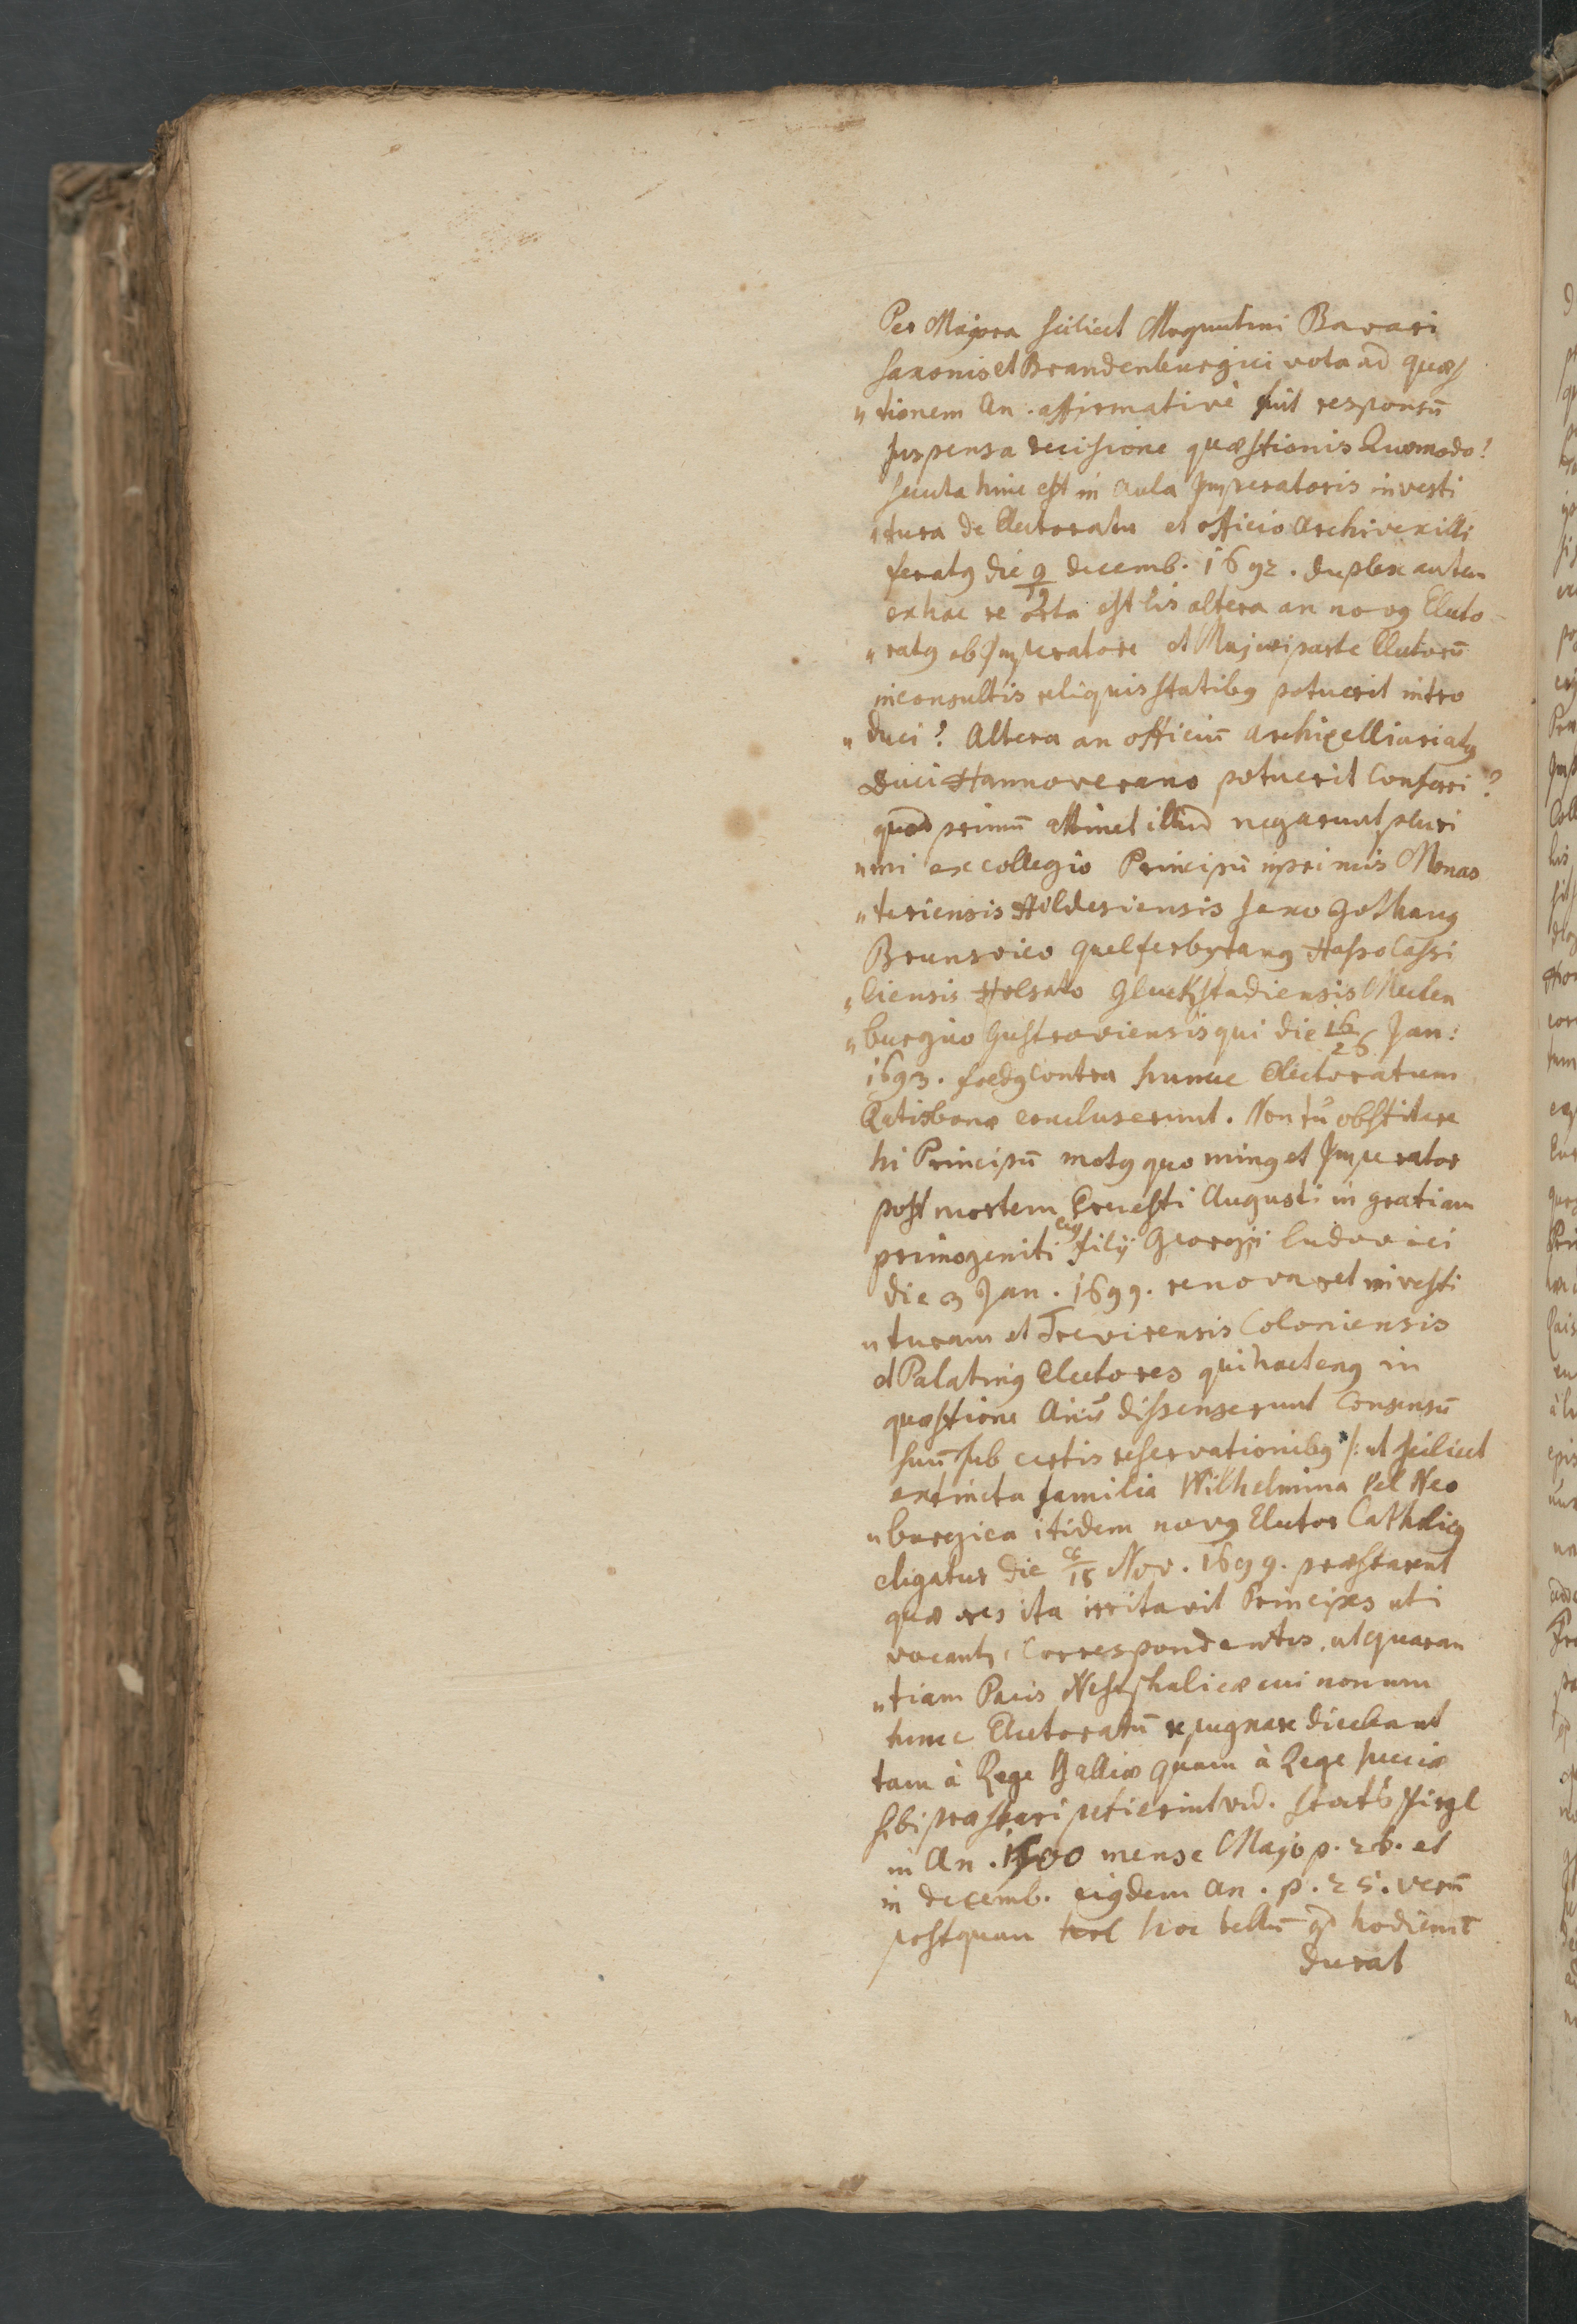 Per Majora scilicet Moguntini Bavari
Saxonis et Brandenburgici vota ad quæs
"tionem An. affirmativè fuit responsū
suspensa decisione quæstionis Quomodo?
secuta hinc est in aula Imperatoris investi
"tura de Electoratu et officio Archivexilli
feratꝰ die 9/19 decemb. 1692. duplex autem
ex hac re orta est lis altera an novꝰ Electo
"ratꝰ ab Imperatore et Majori parte Electorū
inconsultis reliquis statibꝰ potuerit intro
"duci? Altera an officiū archivexilliariatꝰ
Duci Hannoverano potuerit Conferri?
quod primū attinet illud negarunt pluri
"mi ex collegio Principū inprimis Monas
"teriensis Hildesiensis Saxo Gothanꝰ
Brunsvico Guelferbytanꝰ Hasso Cassi
"liensis Holsato Gluckstadiensis Meclen
"burgico Gustroviensis qui die 16/26 Jan:
1693. foedꝰ contra hunc Electoratum
Ratisbonæ concluserunt. Non tn̄ obstitere
hi Principū motꝰ quo minꝰ et Imperator
post mortem Ernesti Augusti in gratiam
primogeniti ejꝰ filij Georgii Ludovici
die 3 Jan. 1699. renovaret investi
"turam et Trevirensis Coloniensis
et Palatinꝰ Electores qui hactenꝰ in
quæstione dissenserunt Consensū
suū sub certis reservationibꝰ /: ut scilicet
extincta familia Wilhelmina vel Neo
"burgica itidem novꝰ Elector Catholicꝰ
eligatur die Nov. 1699. præstarent
quæ res ita irritavit Principes uti
vocant, Correspondentes, ut quaran
"tiam Pacis Westphalicæ cui nonum
hunc Electoratū repugnare dicebant
tam à Rege Galliæ quam à Rege Sueciæ
sibi præstari petierint vid. Stats Spiegl
in An. 1700 mense Majo p. 26. et
in decemb. ejꝰdem an. p. 25. verū
postquam hoc bellū qd hodienū
durat